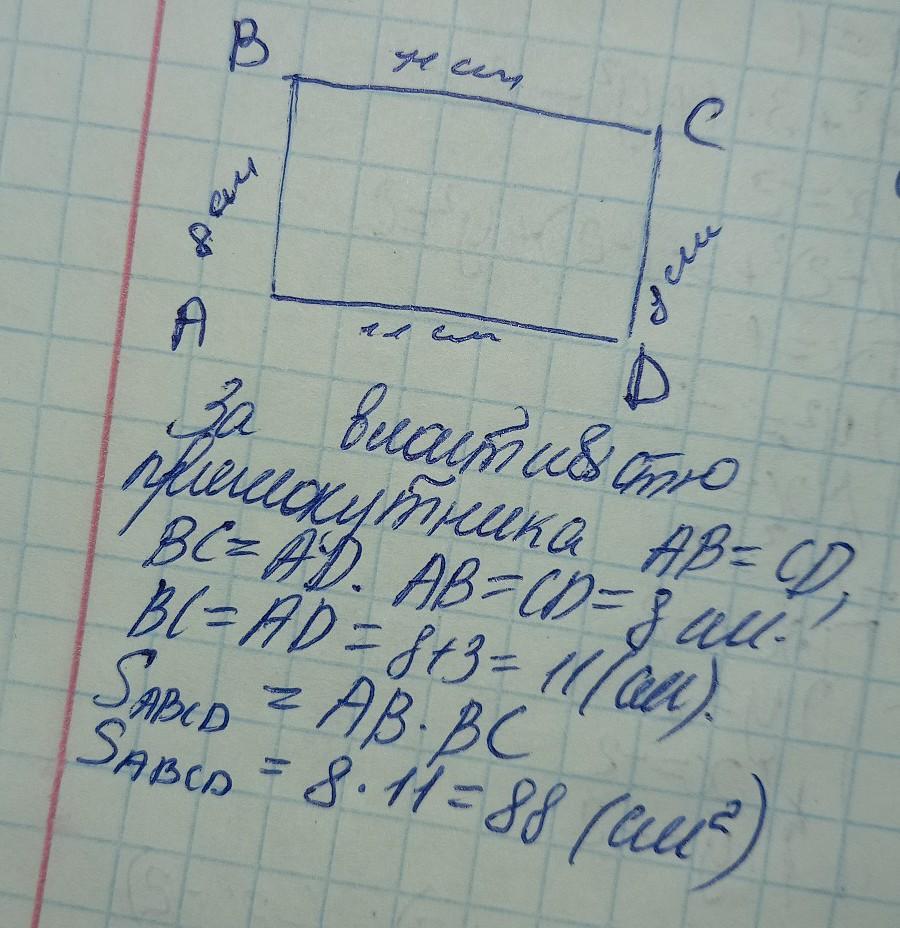 B
11 см
C
8 см
8 см
A
11 см
D
За властивістю
прямокутника AB = CD,
BC = AD. AB = CD = 8 см.
BC = AD = 8+3 = 11 (см).
S ABCD = AB · BC
S ABCD = 8 · 11 = 88 (см²)